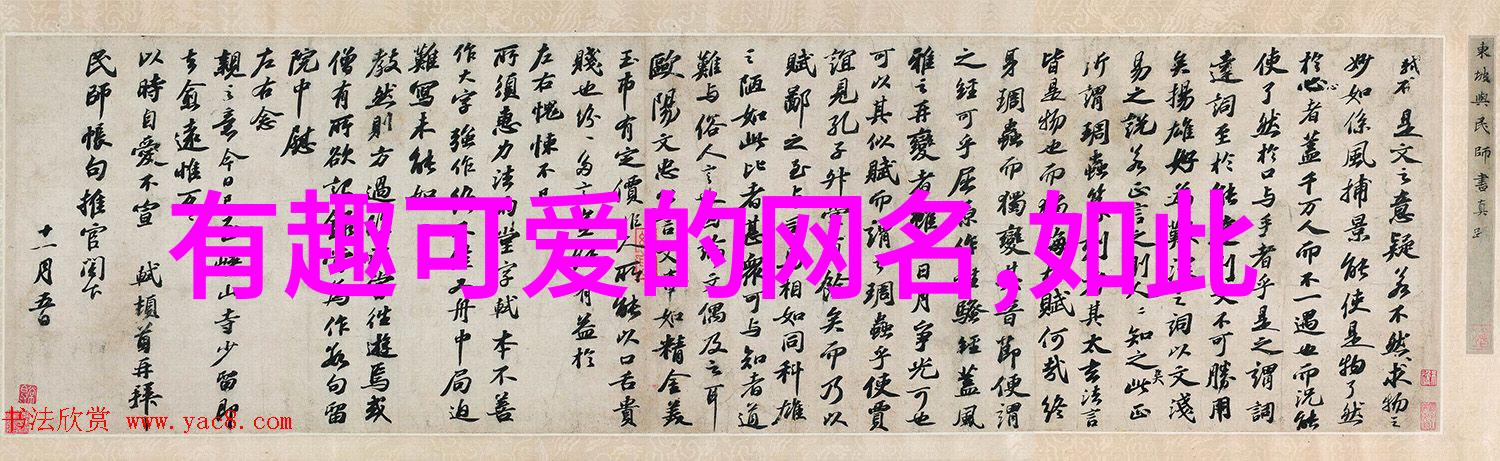 東坡與民師書真跡
是文之意疑若不然求物之
妙如係風捕景能使是物了然
於心者蓋千万人而不一遇也而況能
使了然於口與手者乎是之謂詞
達詞至於能則文不可勝用
矣揚雄好為之詞以文淺
易之說若正言之則人人知之矣此正
所謂琱蟲篆刻其太玄法言
皆是物也而悔賦何哉終
身琱蟲而獨變其音節便謂
之經可乎屈原作離騷經蓋風
雅之再變者雖日月爭光可也
可以其似賦而謂之琱蟲乎使賈
誼見孔子升堂有餘矣而乃以
賦鄙之至與司相如同科雄
之陋如此比者甚衆可与知者道
難与俗人言也論文偶及之耳
歐陽文忠言文如精金美
玉市有定價非人所能以口舌貴
賤也紛紛多言有益於
左右愧悚不已
所須惠力法雨堂字軾本不善
作大字強作終佳又舟中局迫
難寫未能如
教然則方過當往遊焉或
僧有所欲記為作數句留
院中慰
左右念
親之意今日已至峽山寺少留即
去愈遠惟万
以時自愛不宣 軾頓首再拜
民師帳句推官閣下
十一月五日
有趣可爱的网名,如此
书法欣赏 www.yac8.com